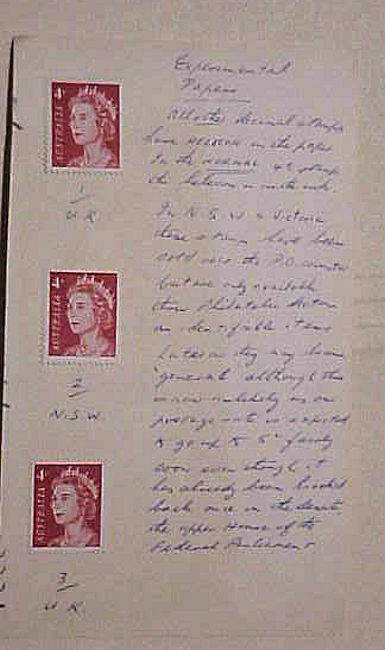 Experimental
Papers
All other decimal stamps
have HELECON in the paper
In the NORMAL 4c stamp
the helecon is in the ink.
In N.S.W & Victoria
these stamps have been
sold over the P.O. counter
but are only available
from Philatelic
as identifiable items
Later on they may become
"generals" although this
is now unlikely as our
postage rate is expected
to go up to 5c fairly
soon even though it
has already been knocked
back once in the Senate
the upper House of the
Federal Parliament
4c
AUSTRALIA
1
U K
4c
AUSTRALIA
2
N.S.W.
4c
AUSTRALIA
3
U K